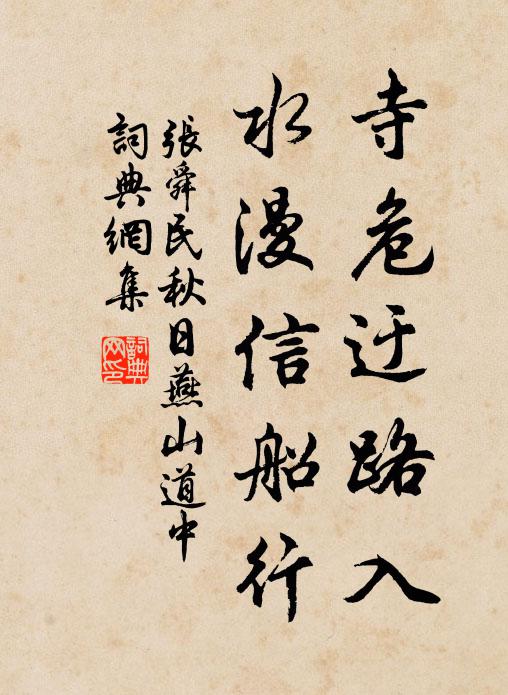 寺危迂路入
水漫信船行
張舜民秋日燕山道中
詞典網集
詞典網印